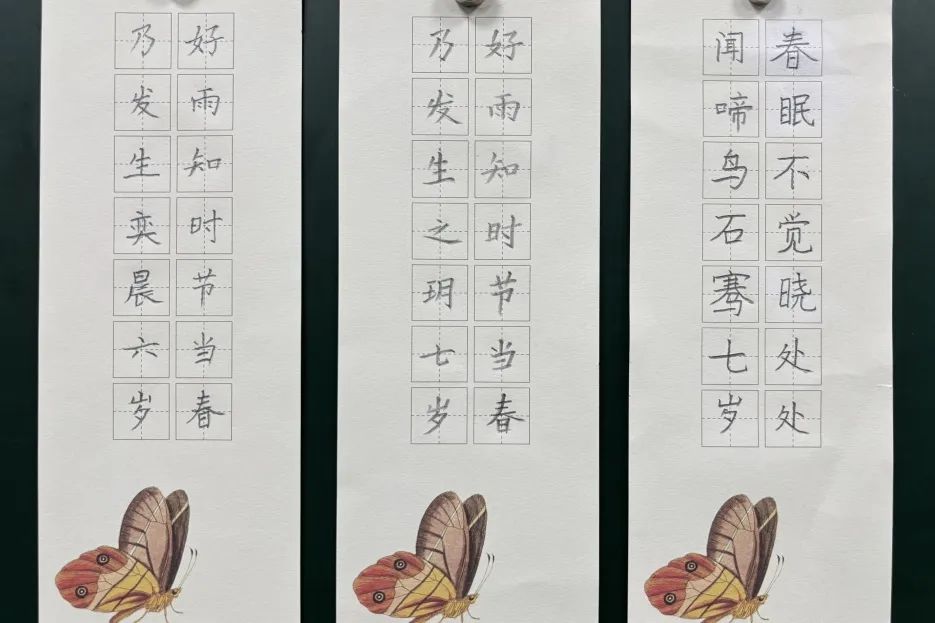 好雨知时节当春
乃发生奕晨六岁
好雨知时节当春
乃发生之玥七岁
春眠不觉晓处处
闻啼鸟石骞七岁